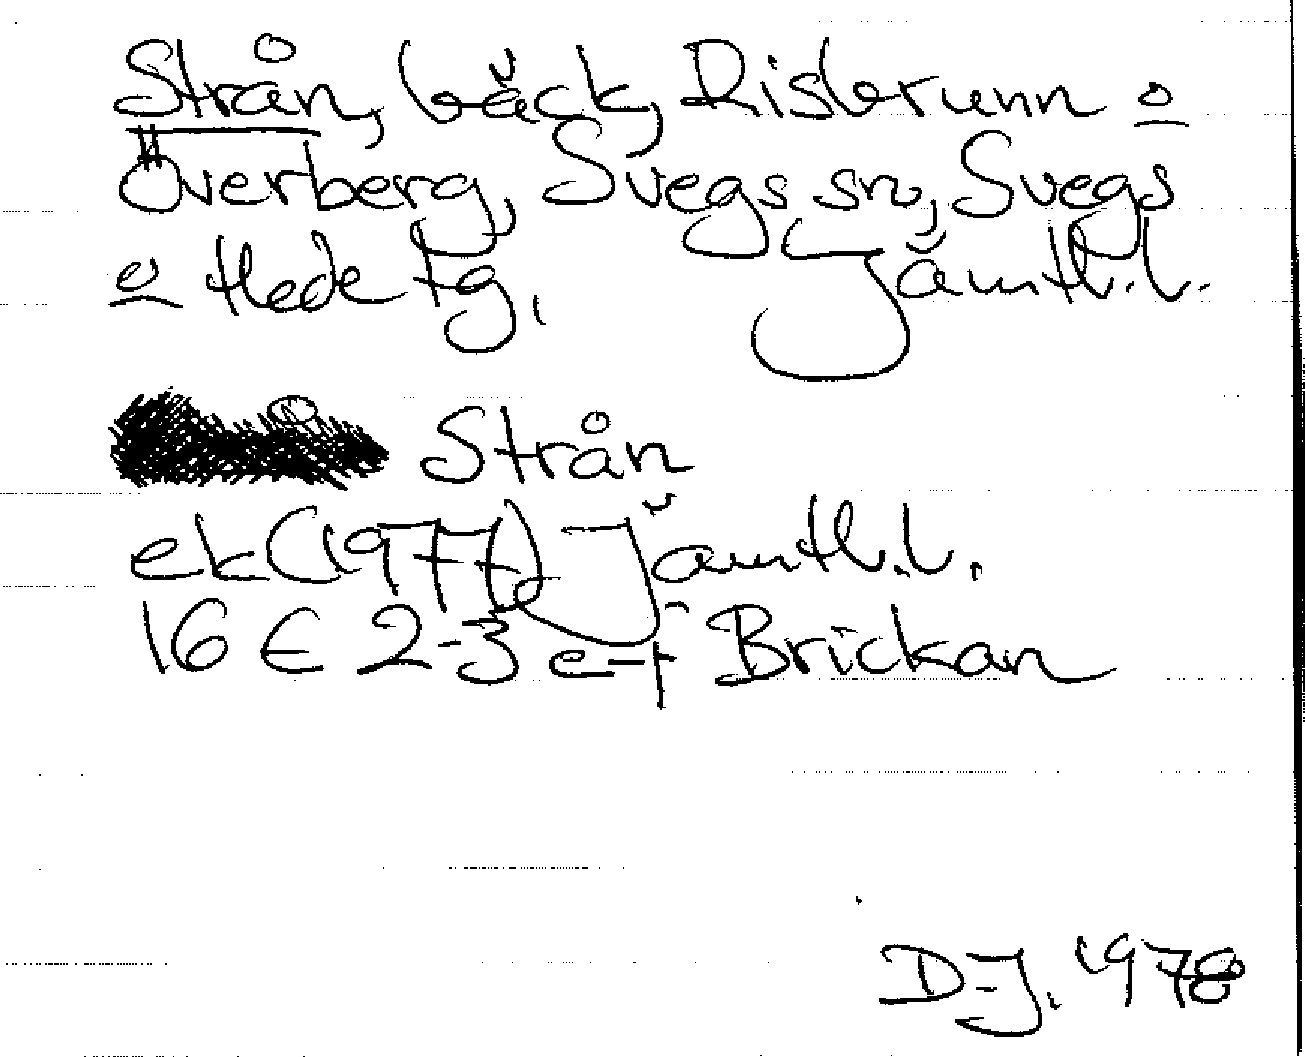 Strån, bäck, Risbrunn o
Överberg, Svegs sn, Svegs
o Hede tg, Jämtl.l.
Strån
ek (1977) Jämtl.l.
16 E 2-3 e-f Brickan
D-J. 1978